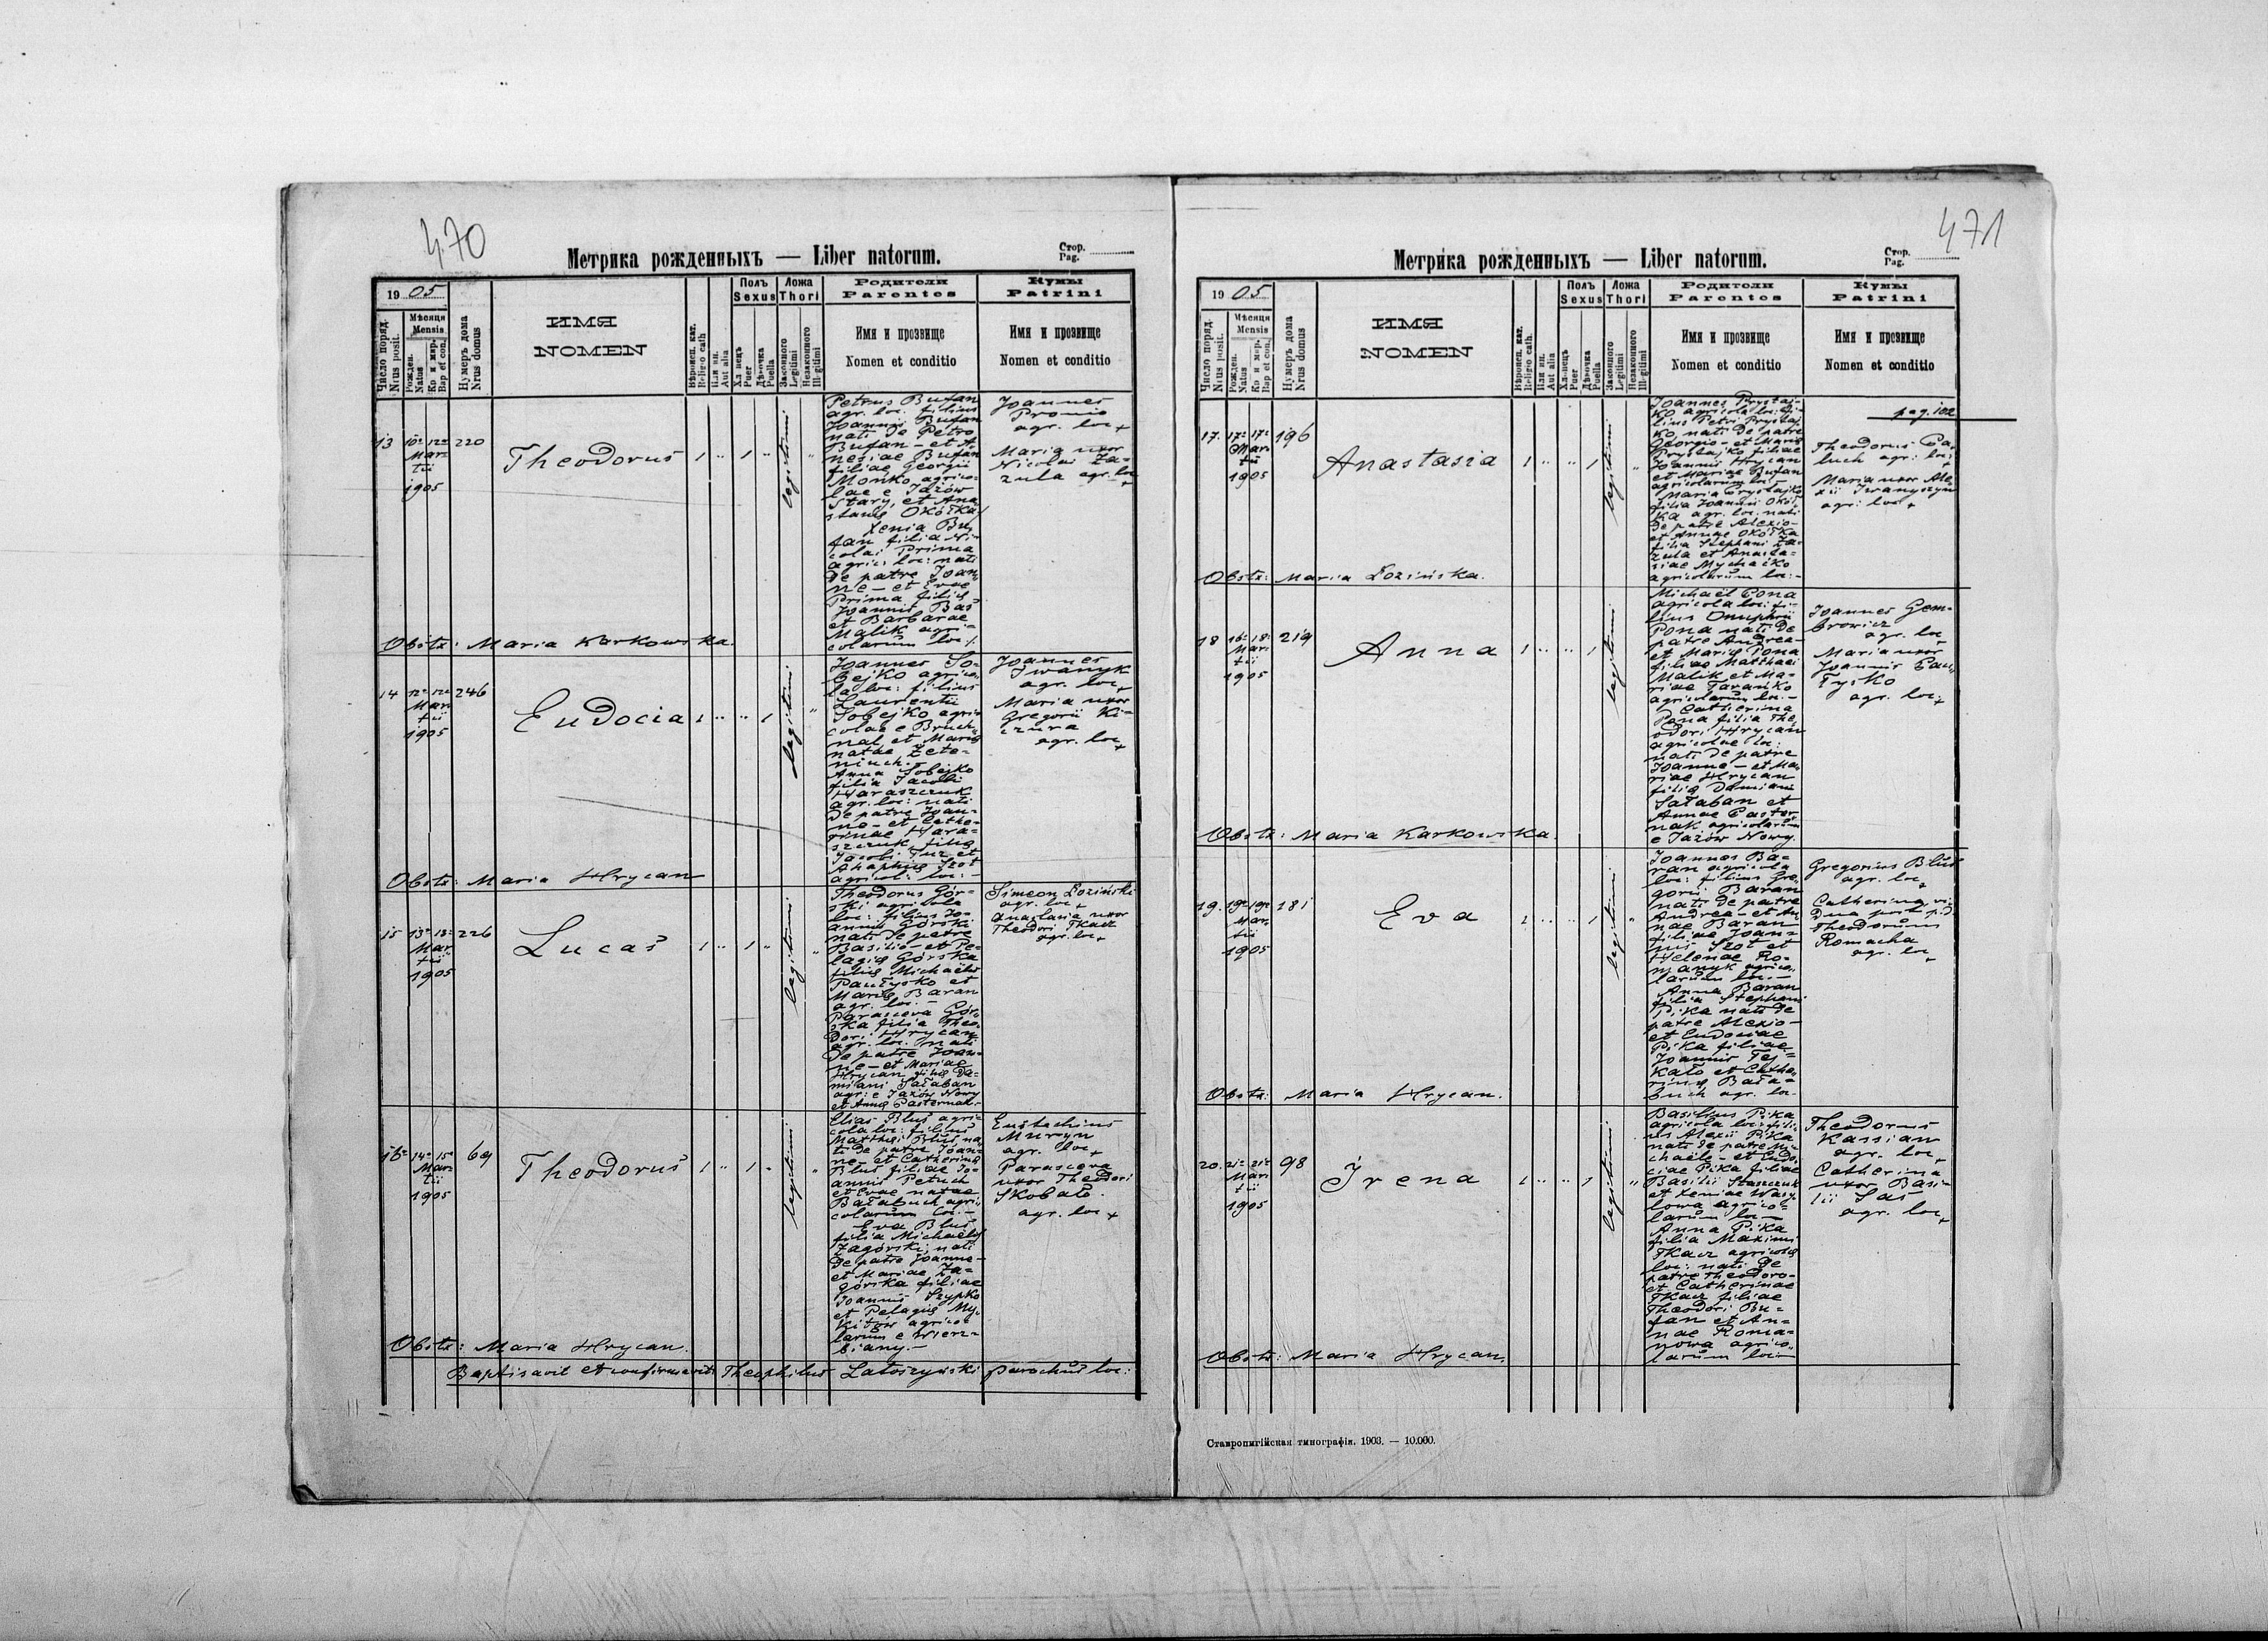 470
Метрика рожденныхъ — Liber natorum.
Стор.
Pag.
19 05
Число поряд.
Nrus posit.
Мѣсяця
Mensis
Рожден.
Natus
Кр и мѵр.
Bap et con.
Нумеръ дома
Nrus domus
ИМЯ
NOMEN
Вѣроисп. кат.
Religo cath
Или ин.
Aut alia
Полъ
Sexus
Хлопецъ
Puer
Дѣвочка
Puella
Ложа
Thori
Законного
Legitimi
Незаконного
Illegitimi
Родители
Parentes
Имя и прозвище
Nomen et conditio
Кумы
Patrini
Имя и прозвище
Nomen et conditio
13
10a 12a
Mar
tii
1905
220
Theodorus
1 " 1 "
legitimi
"
Petrus Bufan
agr. loc. filius
Joannis Bufan
nati de Petro
Bufan - et A
nesiae Bufan
filiae Georgii
Mońko agrico-
lae e Jazów
Stary, et Ana
stasię Okółka/
Xenia Bu
fan filia Ni-
colai Prima
agric: loc: nati
de patre Joan
ne - et Evae
Prima filię
Joannis Baś
et Barbarae
Malik agri-
colarum loc:/.
Joannes
Promio
agr. loc +
Maria uxor
Nicolai Za-
zula agr. loc
+
Obstx: Maria Karkowska.
14
12a 12a
Mar
tii
1905
246
Eudocia
1 " " 1
legitimi
"
Joannes So-
bejko agrico
la loc: filius
Laurentii
Sobejko agri-
colae e Bruch
nal et Marię
natae Żete-
niuch. -
Anna Sobejko
filia Jacobi
Haraszczuk
agr. loc: nati
de patre Joan-
ne - et Cathe-
rinae Hara-
szczuk filię
Jacobi Tuz et
Ahaphię Szot
agricol: loc: -
Joannes
Iwanyk
agr. loc
+
Maria uxor
Gregorii Ki-
czura
agr. loc
+
Obstx: Maria Hrycan
15
13a 13a
Mar
tii
1905
226
Lucas
1 " 1 "
legitimi
"
Theodorus Gór-
ski agricola
loc: filius Jo-
annis Górski
nati de patre
Basilio - et Pe-
lagię Górska
filię Michaëlis
Paułysko et
Marię Baran
agr. loc. -
Parasceva Gór-
ska filia Theo
dori Hrycan
agr. loc. nati
de patre Joan-
ne - et Mariae
Hrycan filię Da-
miani Sałaban
agr: e Jazów Nowy
et Annę Pasternak -
Simeon Łoziński
agr. loc +
Anastasia uxor
Theodori Tkacz
agr. loc +
16
14a 15a
Mar
tii
1905
69
Theodorus
1 " 1 "
legitimi
"
Elias Bluś agri-
cola loc: filius
Matthei Bluś na
ti de patre Joan-
ne - et Catherinę
Bluś filiae Jo-
annis Petuch
et Evae natae
Bałabuch agri
colarum loc. -
Eva Bluś
filia Michaëlis
Zagórski; nati
de patre Joanne -
et Mariae Za-
górska filiae
Joannis Szypko
et Pelagię My-
kitów agrico-
larum e Wierz-
biany. -
Eustachius
Muryn
agr. loc
+
Parasceva
uxor Theodori
Skobało.
agr. loc +
Obstx: Maria Hrycan.
Baptisavit et confirmavit: Theophilus Łatoszyński parochus loc:
471
Метрика рожденныхъ — Liber natorum.
Стор.
Pag.
19 05
Число поряд.
Nrus posit.
Мѣсяця
Mensis
Рожден.
Natus
Кр и мѵр.
Bap et con.
Нумеръ дома
Nrus domus
ИМЯ
NOMEN
Вѣроисп. кат.
Religo cath.
Или ин.
Aut alia
Полъ
Sexus
Хлопецъ
Puer
Дѣвочка
Puella
Ложа
Thori
Законного
Legitimi
Незаконного
Illegitimi
Родители
Parentes
Имя и прозвище
Nomen et conditio
Кумы
Patrini
Имя и прозвище
Nomen et conditio
pag. 102
17.
17a 17a
Mar
tii
1905
196
Anastasia
1 " " 1
legitimi
"
Joannes Prystaj-
ko agricola loc: fi-
lius Petri Prystaj
ko, nati de patre
Georgio - et Marię
Prystajko filiae
Joannis Hrycan
et Mariae Bufan
agricolarum loc -
Maria Prystajko
filia Joannis Okół-
ka agr. loc. nati
de patre Alexio -
et Annae Okółka
filia Stephani Za-
zula et Anasta-
siae Mychaćko
agricolarum loc: -
Theodorus Pa-
luch agr: loc:
+
Maria uxor Ale-
xii Iwanyszyn
agr: loc +
Obstx: Maria Łozińska.
18
16a 18a
Mar
tii
1905
219
Anna
1 " " 1
legitimi
Michaël Pona
agricola loc: fi-
lius Onuphrii
Pona nati de
patre Andrea -
et Marię Pona
filiae Matthaei
Malik et Ma-
riae Tarańko
agricolarum loc. -
Catherina
Pona filia The
odori Hrycan
agricolae loc:
nati de patre
Joanne - et Ma
riae Hrycan
filię Damiani
Sałaban et
Annae Paster
nak agricolarum
e Jazów Nowy.
Joannes Gem-
browicz
agr. loc
+
Maria uxor
Joannis Pau-
łysko
agr. loc:
+
Obstx: Maria Karkowska.
19.
19a 19a
Mar
tii
1905
181
Eva
1 " " 1
legitimi
"
Joannes Ba-
ran agricola
loc: filius Gre-
gorii Baran
nati de patre
Andrea - et An
nae Baran
filiae Joan-
nis Szot et
Helenae Ro-
manyk agrico-
larum loc. -
Anna Baran
filia Stephani
Pika nati de
patre Alexio -
et Eudociae
Pika filiae
Joannis Tej-
kało et Cathe-
rinę Bała-
buch agr. loc.
Gregorius Bluś
agr. loc
+
Catherina vi-
dua post p. d.
Theodorum
Romacha
agr. loc
+
Obstx: Maria Hrycan.
20.
21a 21a
Mar
tii
1905
98
Irena
1 " " 1
legitimi
"
Basilius Pika
agricola loc: fili-
us Alexii Pika
nati de patre Mi-
chaële - et Eudo-
ciae Pika filiae
Basilii Staszczuk
et Xeniae Wasy
lowa agrico-
larum loc -
Anna Pika
filia Maximi
Tkacz agricolę
loc: nati de
patre Theodoro -
et Catherinae
Tkacz filiae
Theodori Bu-
fan et An-
nae Roma-
nowa agrico-
larum loc: -
Theodorus
Kassian
agr. loc
+
Catherina
uxor Basi-
lii Saś
agr. loc
+
Obstx: Maria Hrycan.
Ставропигійская типографія. 1903. — 10.000.